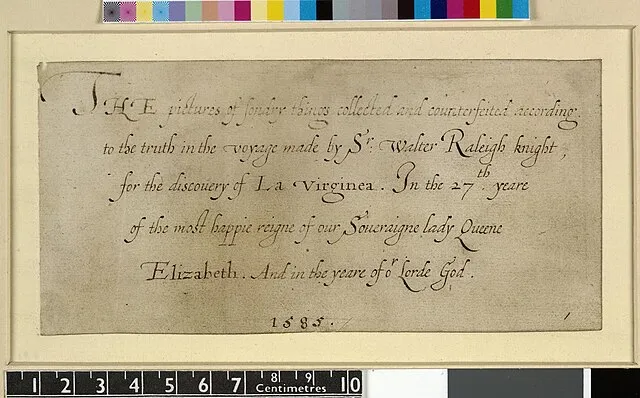 THE pictures of sondry things collected and counterfeited according
to the truth in the voyage made by Sr: Walter Raleigh knight,
for the discouery of La Virginea. In the 27th. yeare
of the most happie reigne of our Soueraigne lady Queene
Elizabeth. And in the yeare of or Lorde God.
1585.
1 2 3 4 5 6 7 8 9 10
Centimetres